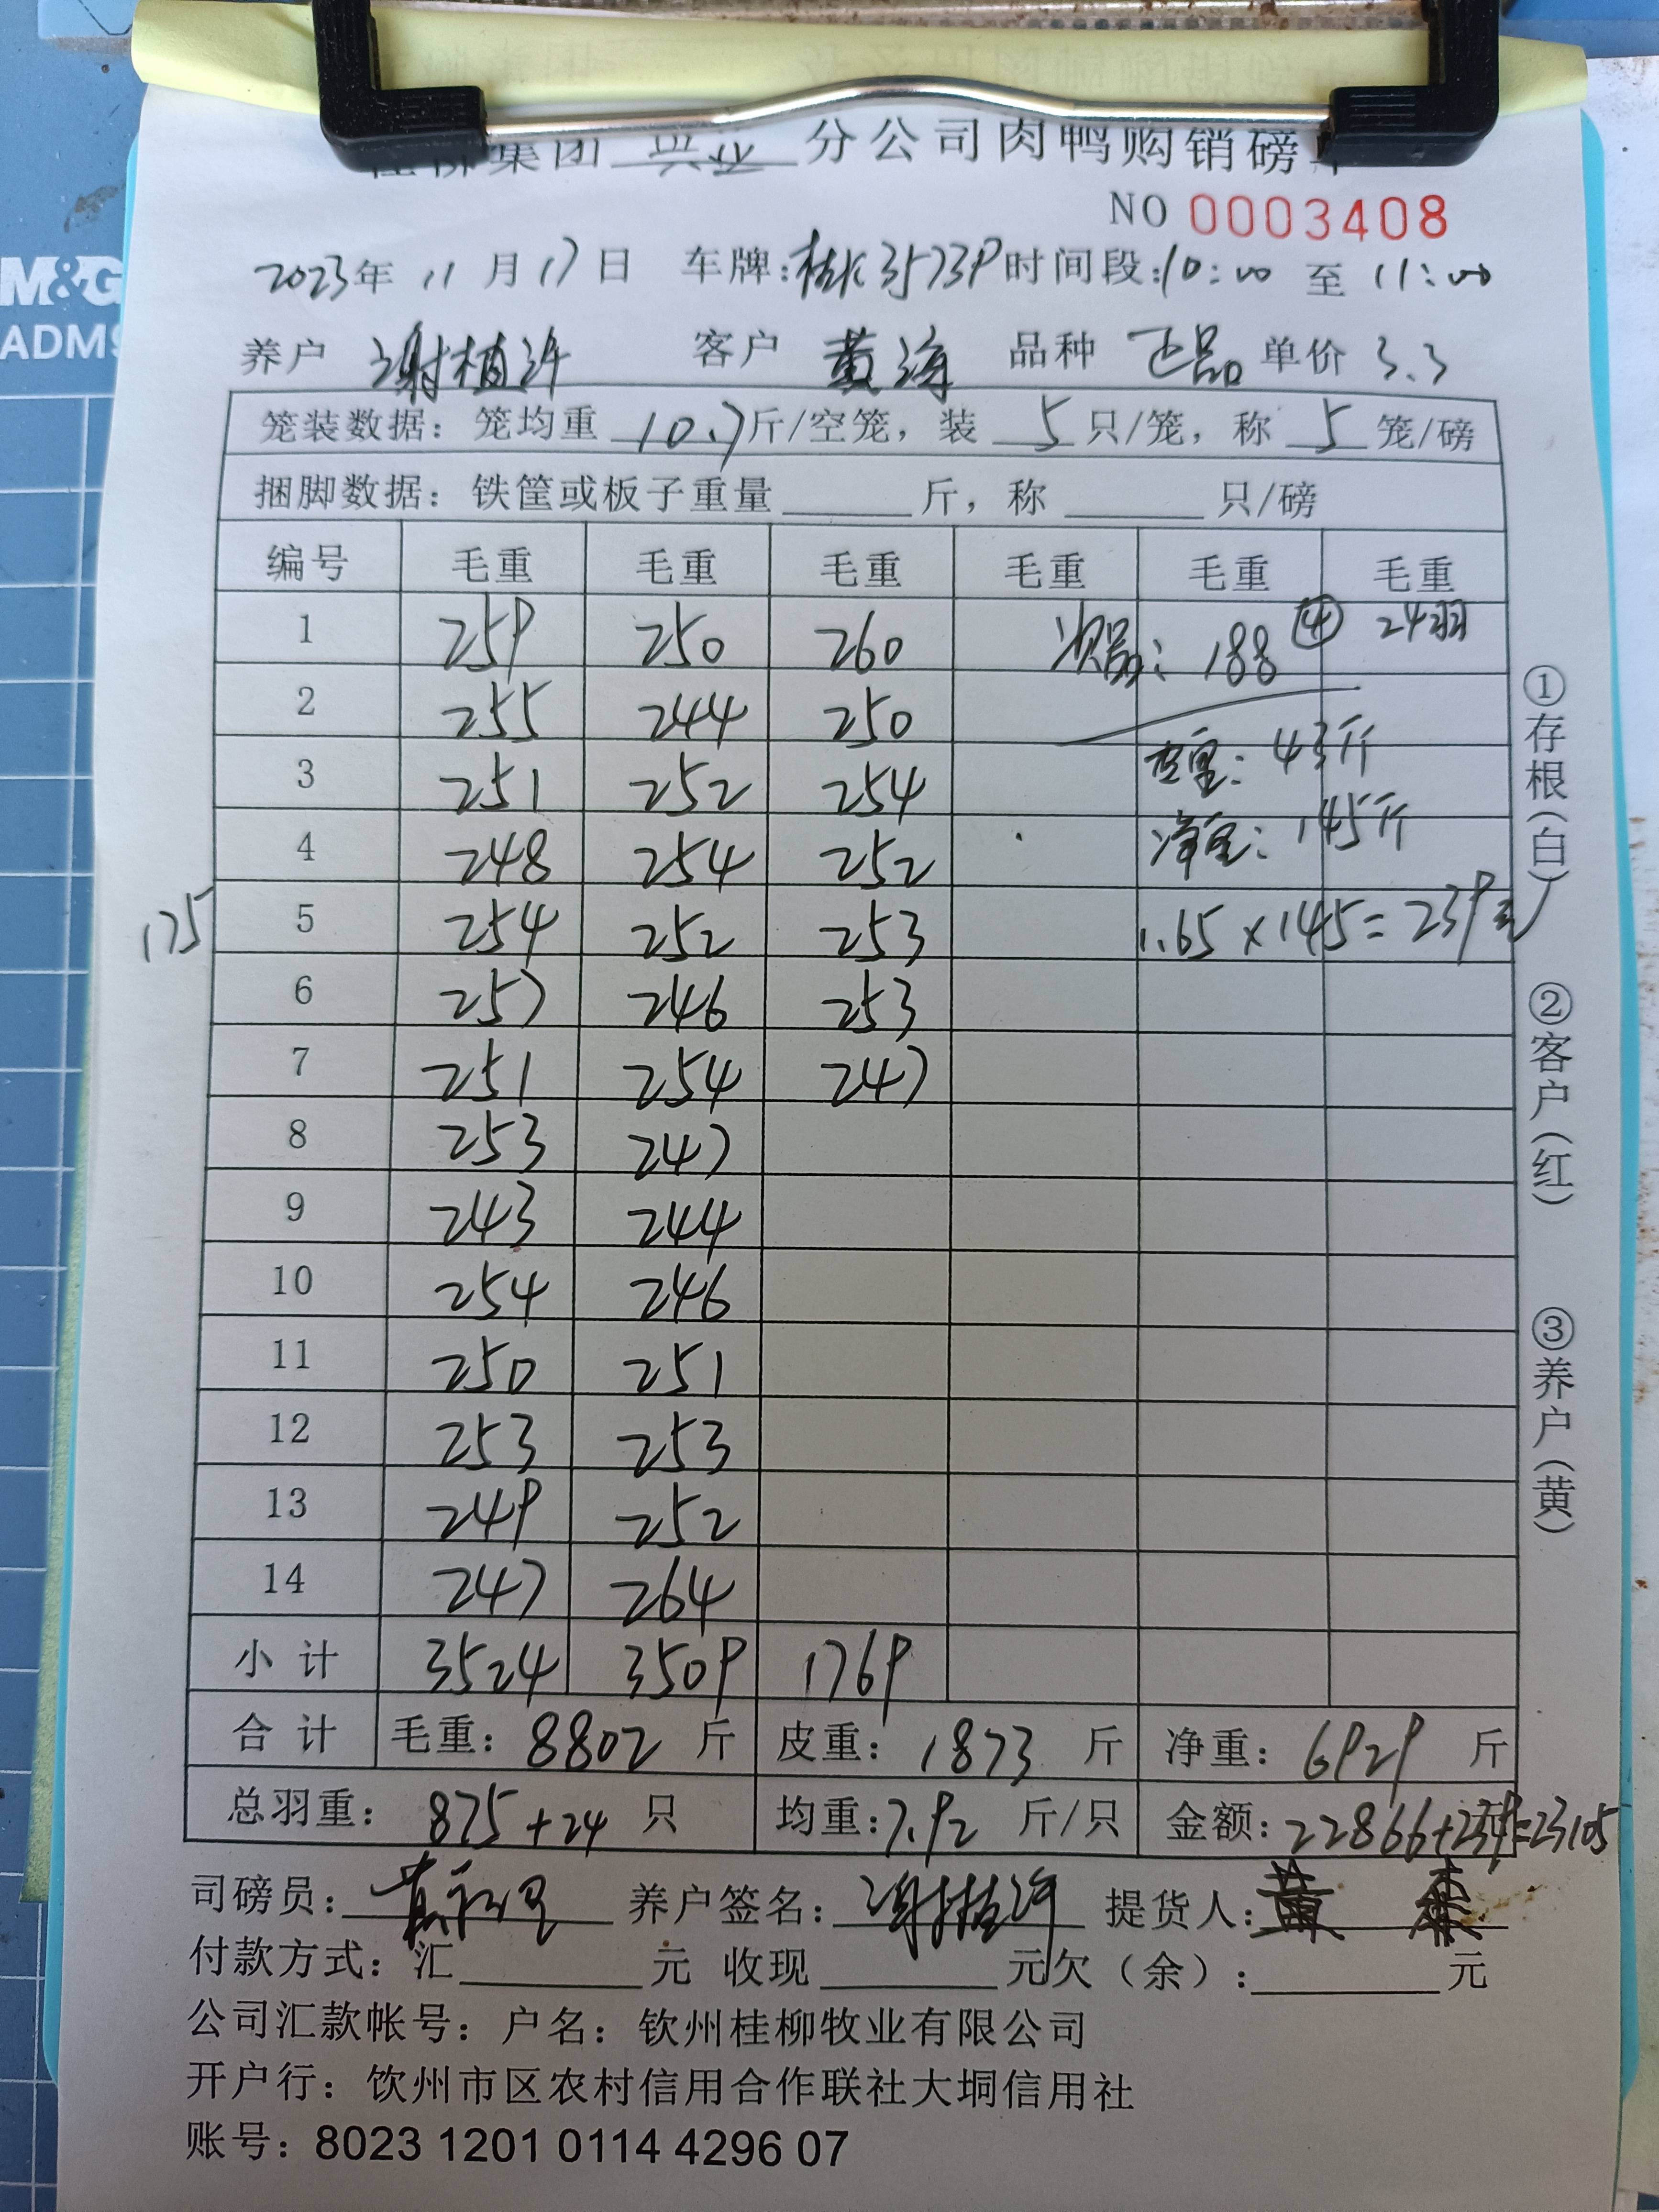 桂柳集团 兴业 分公司肉鸭购销磅单
NO 0003408
M&G
ADMS
2023年 11月17日 车牌:桂K3573P 时间段:10:00 至 11:00
养户 谢植许 客户 黄海 品种 正品 单价 3.3
笼装数据：笼均重 10.7 斤/空笼，装 5 只/笼，称 5 笼/磅
捆脚数据：铁筐或板子重量 斤，称 只/磅
编号 毛重 毛重 毛重 毛重 毛重 毛重
1 259 250 260 次品: 188 ④ 24羽
2 255 244 250
3 251 252 254 皮重: 43斤
4 248 254 252 净重: 145斤
175 5 254 252 253 1.65×145=239元
6 257 246 253
7 251 254 247
8 253 247
9 243 244
10 254 246
11 250 251
12 253 253
13 249 252
14 247 264
小计 3524 3509 1769
合计 毛重: 8802 斤 皮重: 1873 斤 净重: 6929 斤
总羽重: 875+24 只 均重:7.92 斤/只 金额:22866+239=23105
司磅员: 养户签名: 谢植许 提货人: 黄
付款方式: 汇 元 收现 元欠（余）: 元
公司汇款帐号：户名：钦州桂柳牧业有限公司
开户行：饮州市区农村信用合作联社大垌信用社
账号：8023 1201 0114 4296 07
①存根(白)
②客户(红)
③养户(黄)